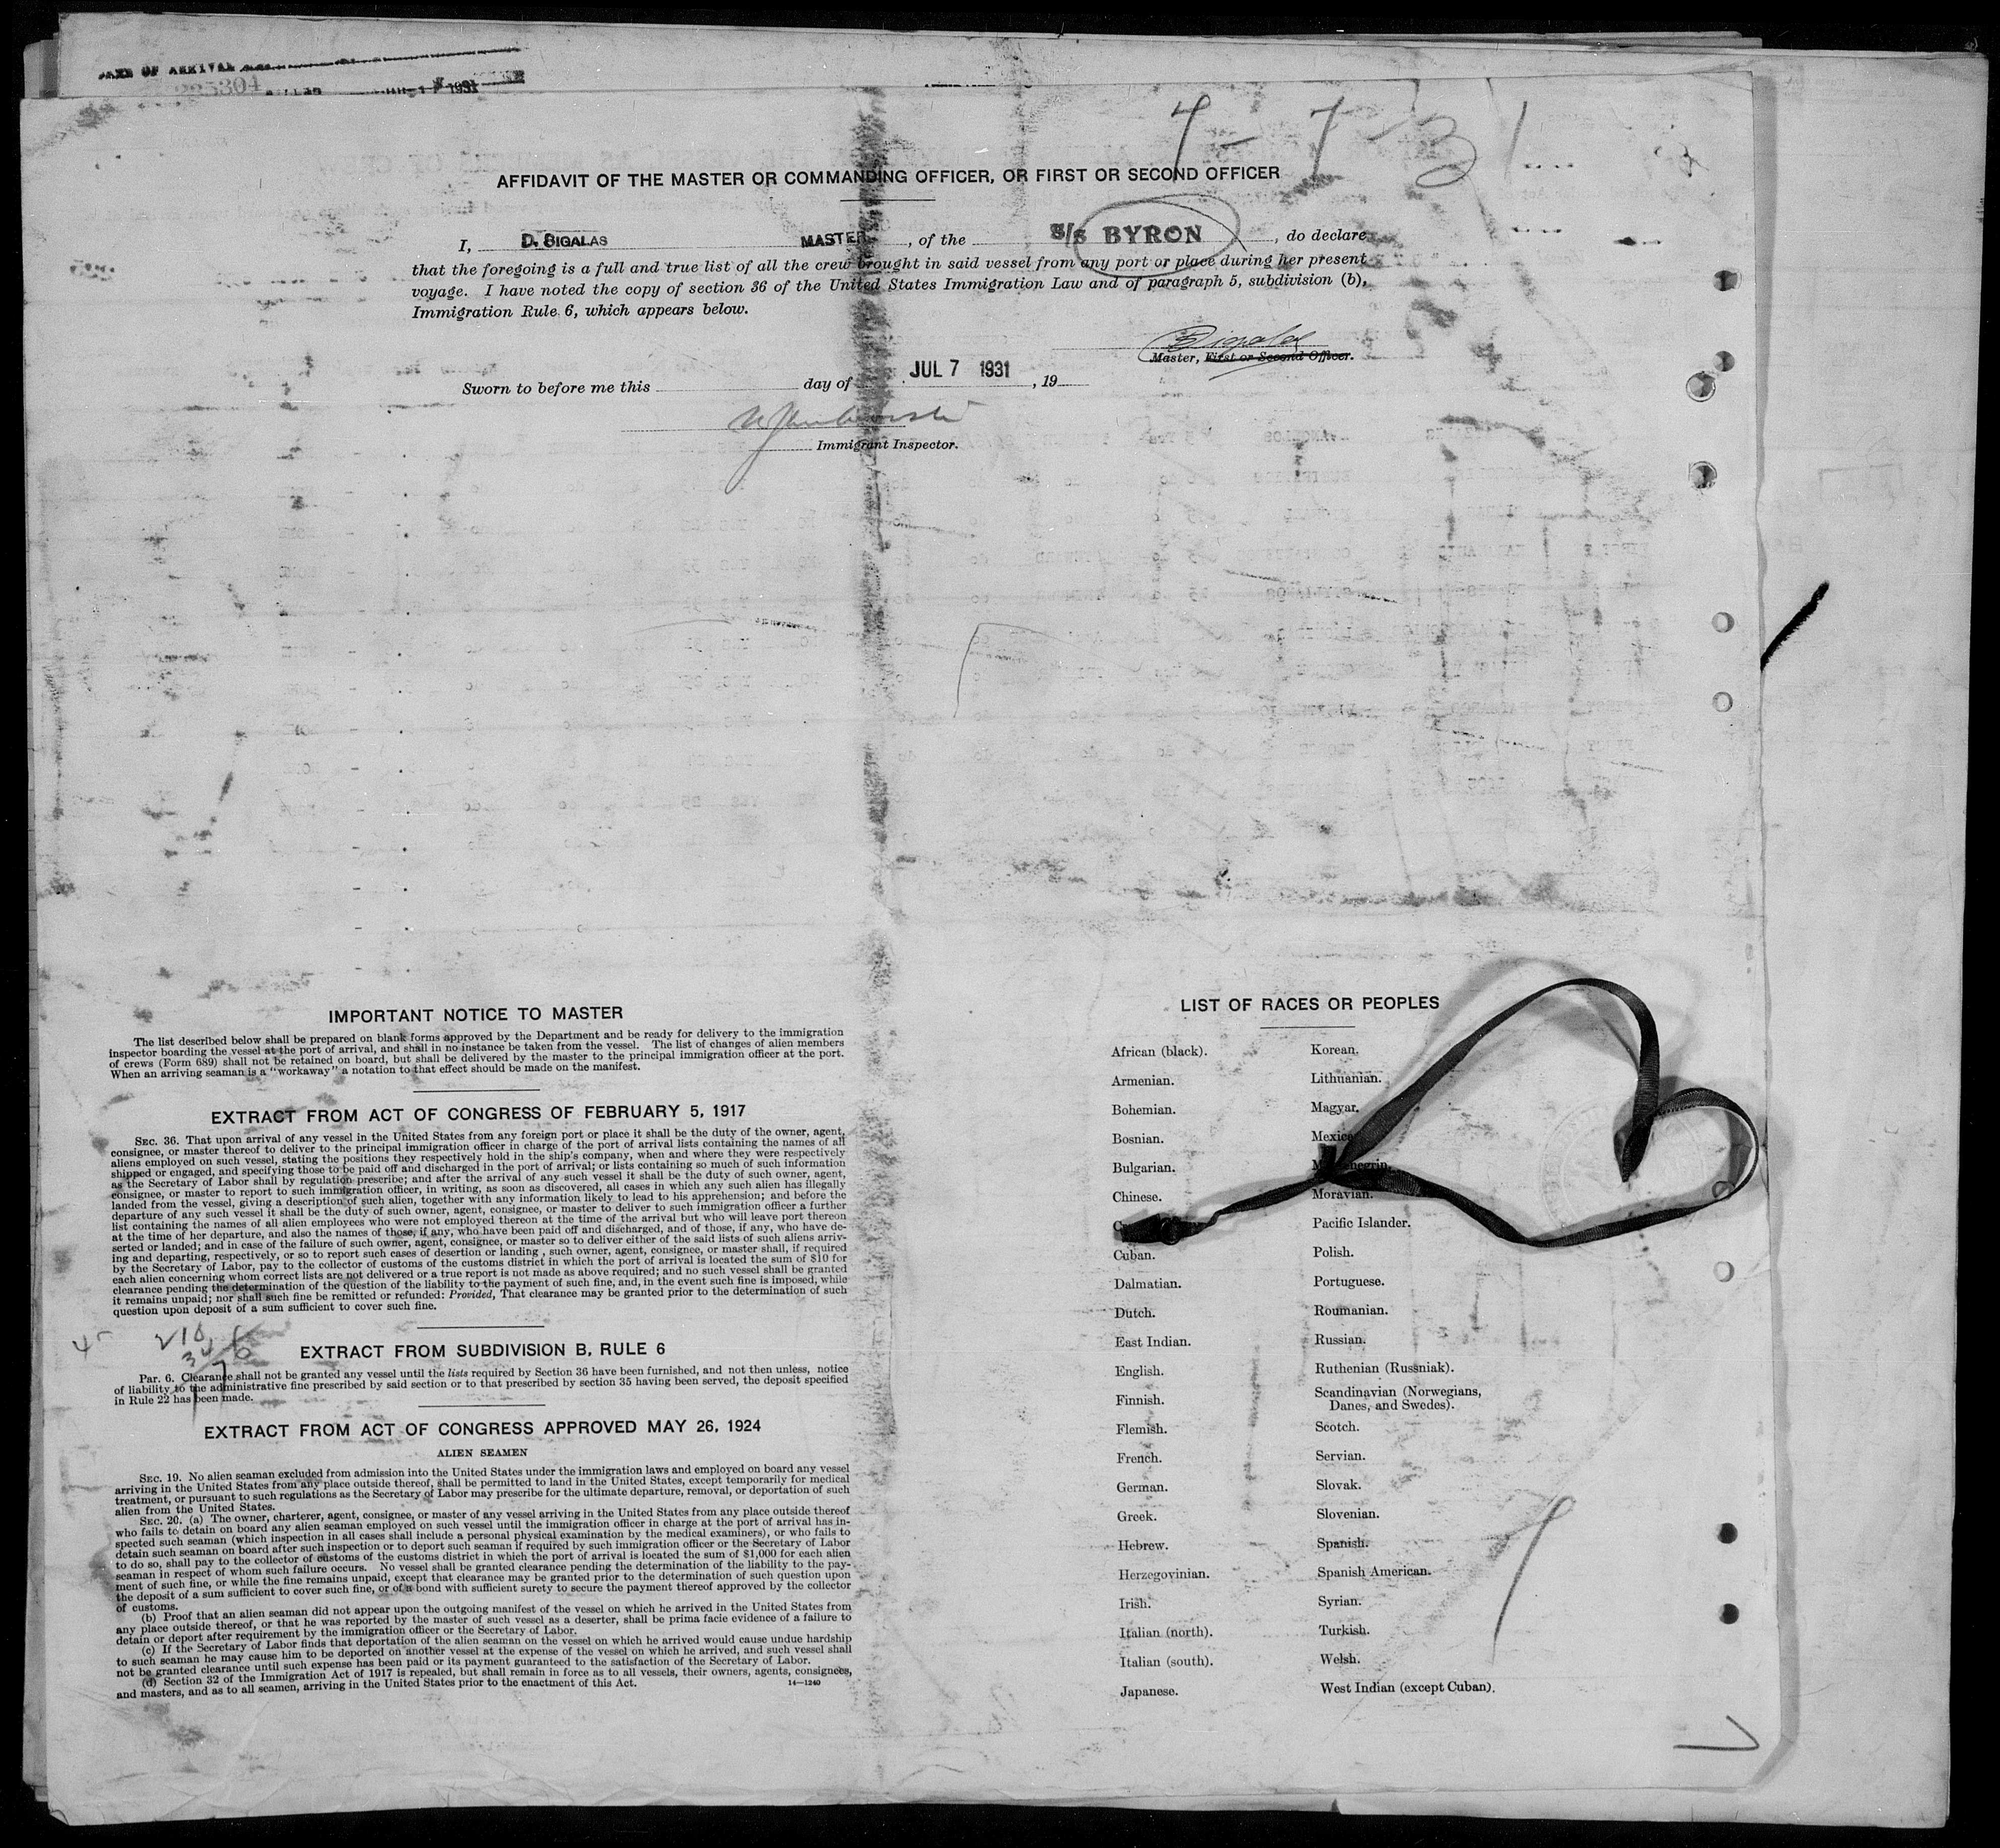 225304
1931
4 - 7 - 31
AFFIDAVIT OF THE MASTER OR COMMANDING OFFICER, OR FIRST OR SECOND OFFICER
I, D. SIGALAS MASTER, of the S/S BYRON, do declare
that the foregoing is a full and true list of all the crew brought in said vessel from any port or place during her present
voyage. I have noted the copy of section 36 of the United States Immigration Law and of paragraph 5, subdivision (b),
Immigration Rule 6, which appears below.
Master, First or Second Officer.
Sworn to before me this day of JUL 7 1931, 19
Immigrant Inspector.
IMPORTANT NOTICE TO MASTER
The list described below shall be prepared on blank forms approved by the Department and be ready for delivery to the immigration
inspector boarding the vessel at the port of arrival, and shall in no instance be taken from the vessel. The list of changes of alien members
of crews (Form 689) shall not be retained on board, but shall be delivered by the master to the principal immigration officer at the port.
When an arriving seaman is a "workaway" a notation to that effect should be made on the manifest.
EXTRACT FROM ACT OF CONGRESS OF FEBRUARY 5, 1917
SEC. 36. That upon arrival of any vessel in the United States from any foreign port or place it shall be the duty of the owner, agent,
consignee, or master thereof to deliver to the principal immigration officer in charge of the port of arrival lists containing the names of all
aliens employed on such vessel, stating the positions they respectively hold in the ship's company, when and where they were respectively
shipped or engaged, and specifying those to be paid off and discharged in the port of arrival; or lists containing so much of such information
as the Secretary of Labor shall by regulation prescribe; and after the arrival of any such vessel it shall be the duty of such owner, agent,
consignee, or master to report to such immigration officer, in writing, as soon as discovered, all cases in which any such alien has illegally
landed from the vessel, giving a description of such alien, together with any information likely to lead to his apprehension; and before the
departure of any such vessel it shall be the duty of such owner, agent, consignee, or master to deliver to such immigration officer a further
list containing the names of all alien employees who were not employed thereon at the time of the arrival but who will leave port thereon
at the time of her departure, and also the names of those, if any, who have been paid off and discharged, and of those, if any, who have de-
serted or landed; and in case of the failure of such owner, agent, consignee, or master so to deliver either of the said lists of such aliens arriv-
ing and departing, respectively, or so to report such cases of desertion or landing, such owner, agent, consignee, or master shall, if required
by the Secretary of Labor, pay to the collector of customs of the customs district in which the port of arrival is located the sum of $10 for
each alien concerning whom correct lists are not delivered or a true report is not made as above required; and no such vessel shall be granted
clearance pending the determination of the question of the liability to the payment of such fine, and, in the event such fine is imposed, while
it remains unpaid; nor shall such fine be remitted or refunded: Provided, That clearance may be granted prior to the determination of such
question upon deposit of a sum sufficient to cover such fine.
EXTRACT FROM SUBDIVISION B, RULE 6
Par. 6. Clearance shall not be granted any vessel until the lists required by Section 36 have been furnished, and not then unless, notice
of liability to the administrative fine prescribed by said section or to that prescribed by section 35 having been served, the deposit specified
in Rule 22 has been made.
EXTRACT FROM ACT OF CONGRESS APPROVED MAY 26, 1924
ALIEN SEAMEN
SEC. 19. No alien seaman excluded from admission into the United States under the immigration laws and employed on board any vessel
arriving in the United States from any place outside thereof, shall be permitted to land in the United States, except temporarily for medical
treatment, or pursuant to such regulations as the Secretary of Labor may prescribe for the ultimate departure, removal, or deportation of such
alien from the United States.
SEC. 20. (a) The owner, charterer, agent, consignee, or master of any vessel arriving in the United States from any place outside thereof
who fails to detain on board any alien seaman employed on such vessel until the immigration officer in charge at the port of arrival has in-
spected such seaman (which inspection in all cases shall include a personal physical examination by the medical examiners), or who fails to
detain such seaman on board after such inspection or to deport such seaman if required by such immigration officer or the Secretary of Labor
to do so, shall pay to the collector of customs of the customs district in which the port of arrival is located the sum of $1,000 for each alien
seaman in respect of whom such failure occurs. No vessel shall be granted clearance pending the determination of the liability to the pay-
ment of such fine, or while the fine remains unpaid, except that clearance may be granted prior to the determination of such question upon
the deposit of a sum sufficient to cover such fine, or of a bond with sufficient surety to secure the payment thereof approved by the collector
of customs.
(b) Proof that an alien seaman did not appear upon the outgoing manifest of the vessel on which he arrived in the United States from
any place outside thereof, or that he was reported by the master of such vessel as a deserter, shall be prima facie evidence of a failure to
detain or deport after requirement by the immigration officer or the Secretary of Labor.
(c) If the Secretary of Labor finds that deportation of the alien seaman on the vessel on which he arrived would cause undue hardship
to such seaman he may cause him to be deported on another vessel at the expense of the vessel on which he arrived, and such vessel shall
not be granted clearance until such expense has been paid or its payment guaranteed to the satisfaction of the Secretary of Labor.
(d) Section 32 of the Immigration Act of 1917 is repealed, but shall remain in force as to all vessels, their owners, agents, consignees,
and masters, and as to all seamen, arriving in the United States prior to the enactment of this Act.
14—1240
LIST OF RACES OR PEOPLES
African (black).
Armenian.
Bohemian.
Bosnian.
Bulgarian.
Chinese.
Cuban.
Dalmatian.
Dutch.
East Indian.
English.
Finnish.
Flemish.
French.
German.
Greek.
Hebrew.
Herzegovinian.
Irish.
Italian (north).
Italian (south).
Japanese.
Korean.
Lithuanian.
Magyar.
Moravian.
Pacific Islander.
Polish.
Portuguese.
Roumanian.
Russian.
Ruthenian (Russniak).
Scandinavian (Norwegians,
Danes, and Swedes).
Scotch.
Servian.
Slovak.
Slovenian.
Spanish.
Spanish American.
Syrian.
Turkish.
Welsh.
West Indian (except Cuban).